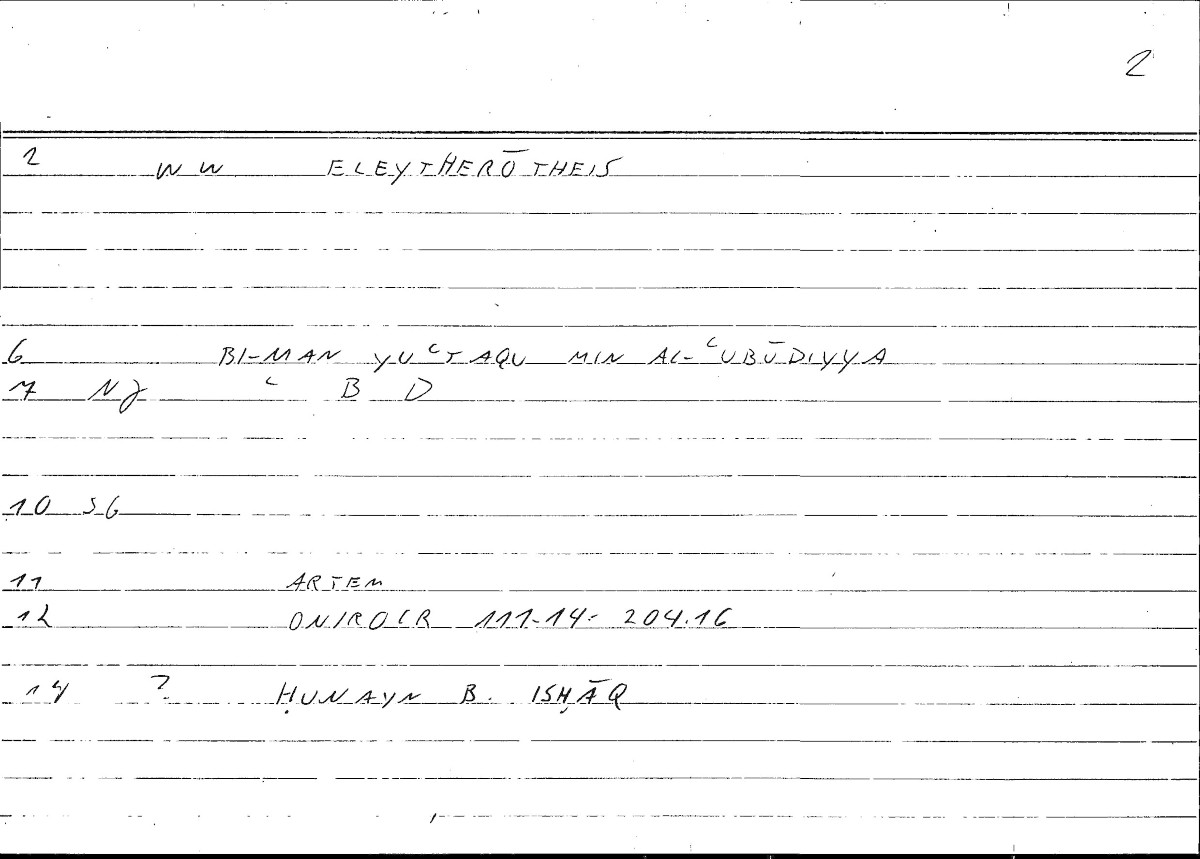 2
2 WW ELEYTHERŌTHEIS
6 BI-MAN YUʿTAQU MIN AL-ʿUBŪDIYYA
7 NJ ʿ B D
10 SG
11 ARTEM
12 ONIROCR 111.14 - 204.16
14 ? ḤUNAYN B. ISḤĀQ